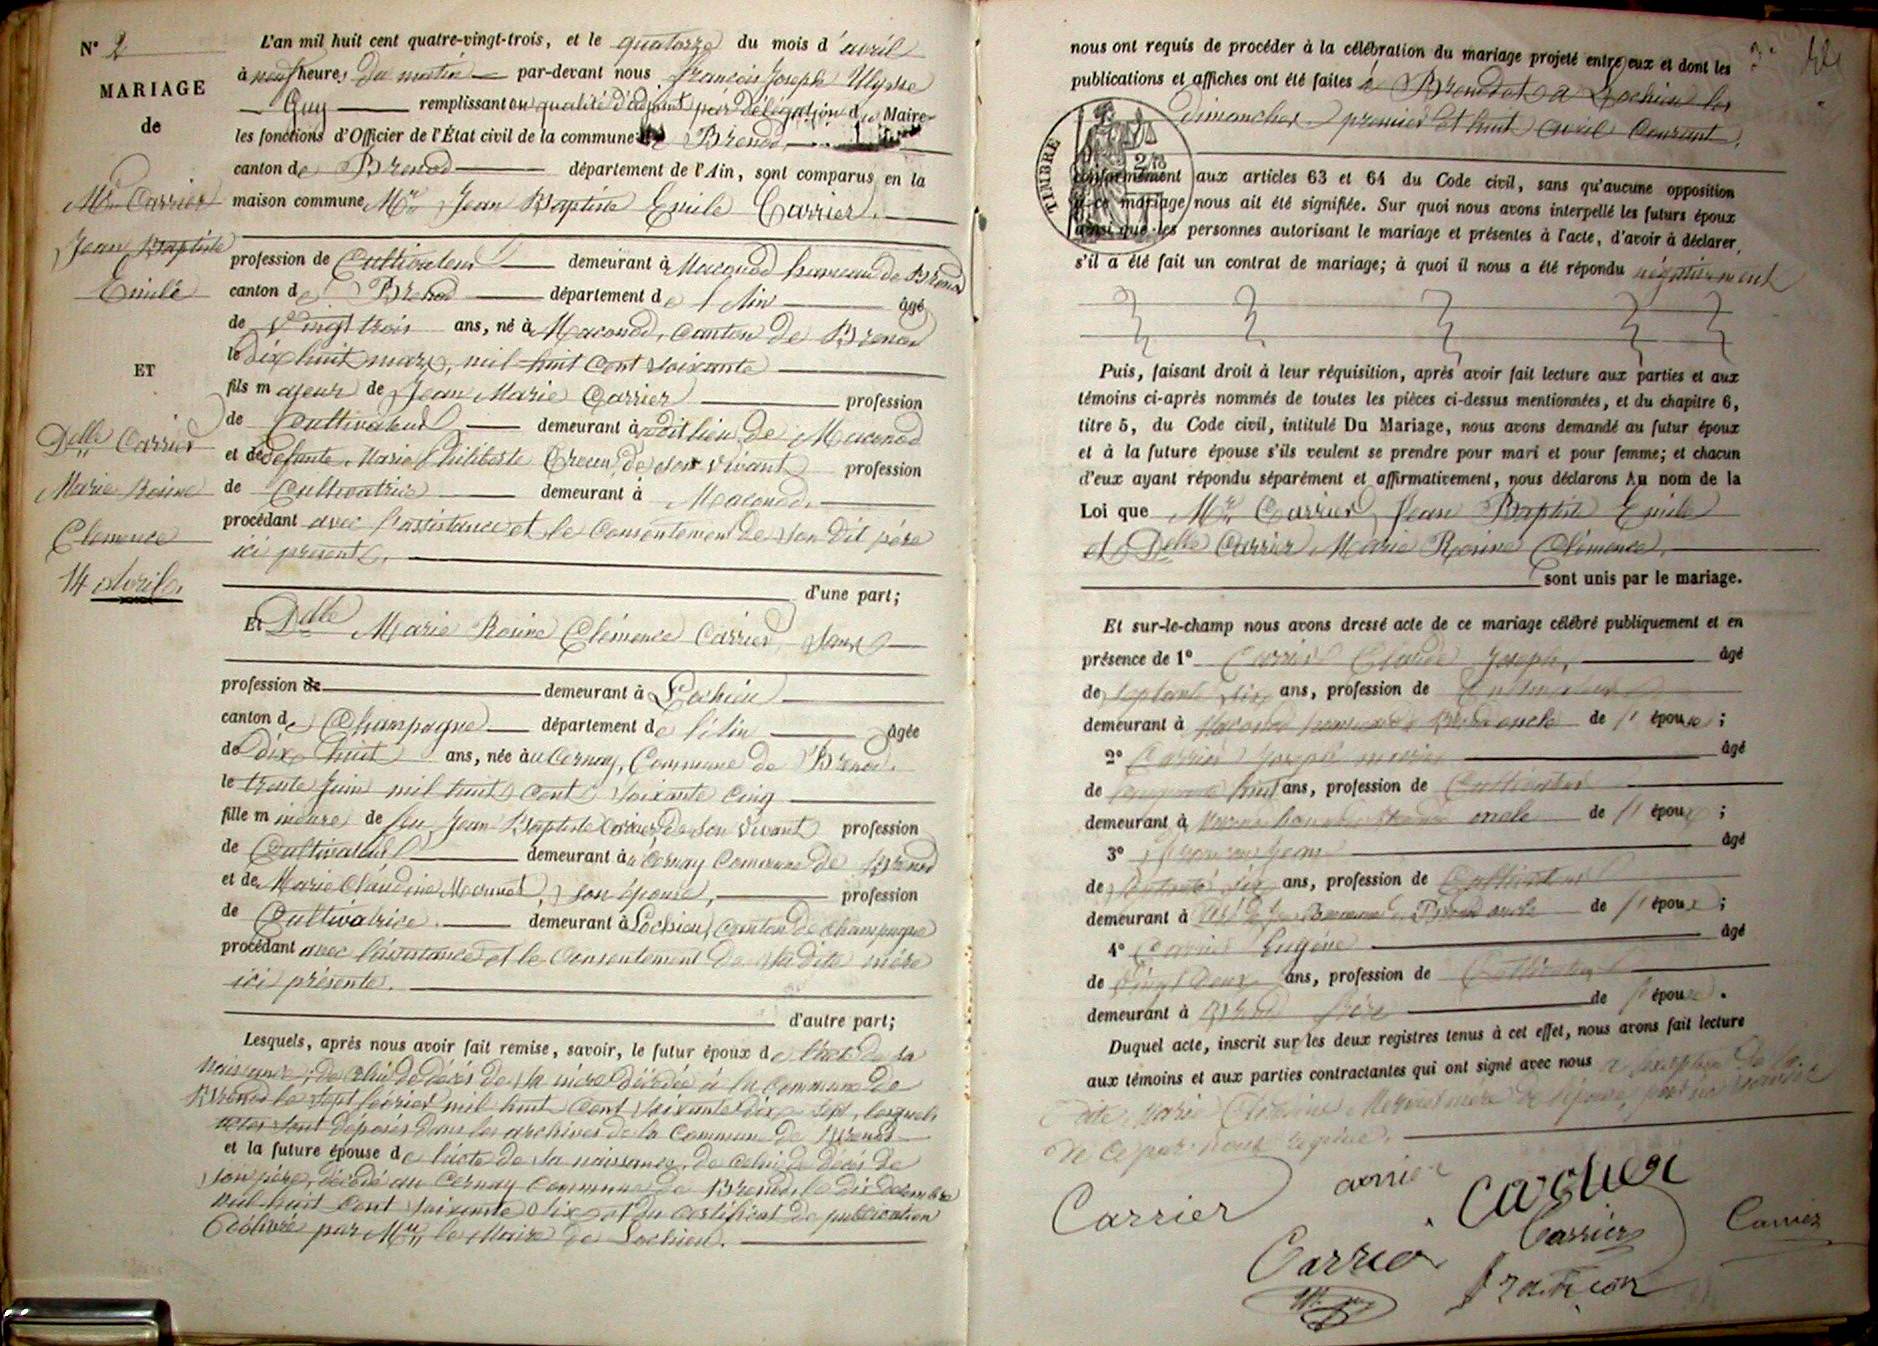 N° 2
MARIAGE
de
Mr. Carrier
Jean Baptiste
Emile
ET
Delle Carrier
Marie Rosine
Clemence
14 Avril.
L'an mil huit cent quatre-vingt-trois, et le quatorze du mois d'avril
à neuf heures du matin par-devant nous François Joseph Ulysse
Guy remplissant en qualité d'adjoint par délégation du Maire
les fonctions d'Officier de l'État civil de la commune de Brenod,
canton de Brenod département de l'Ain, sont comparus en la
maison commune Mr. Jean Baptiste Emile Carrier.
profession de Cultivateur demeurant à Maconod hameau de Brenod
canton de Brenod département de l'Ain âgé
de Vingt trois ans, né à Maconod, Canton de Brenod
le dix huit mars, mil huit cent soixante
fils majeur de Jean Marie Carrier profession
de Cultivateur demeurant audit lieu de Maconod
et de défunte Marie Philiberte de son vivant profession
de Cultivatrice demeurant à Maconod.
procédant avec l'assistance et le consentement de son dit père
ici présent,
d'une part;
Et Delle Marie Rosine Clémence Carrier, sans
profession de demeurant à Lochieu
canton de Champagne département de l'Ain âgée
de dix huit ans, née au Cernay, Commune de Brenod.
le trente juin mil huit cent soixante cinq
fille mineure de feu Jean Baptiste Carrier de son vivant profession
de Cultivateur demeurant au Cernay Commune de Brenod
et de Marie Claudine Mermet, son épouse, profession
de Cultivatrice. demeurant à Lochieu, canton de Champagne
procédant avec l'assistance et le consentement de sa dite mère
ici présente.
d'autre part;
Lesquels, après nous avoir fait remise, savoir, le futur époux de l'acte de sa
naissance, de celui de décès de sa mère décédée à la commune de
Brenod le sept février mil huit cent soixante dix sept, lesquels
actes sont déposés dans les archives de la commune de Brenod
et la future épouse de l'acte de sa naissance, de celui de décès de
son père, décédé au Cernay commune de Brenod, le dix décembre
mil huit cent soixante dix et du certificat de publication
délivré par Mr. le Maire de Lochieu.
nous ont requis de procéder à la célébration du mariage projeté entre eux et dont les
publications et affiches ont été faites à Brenod et à Lochieu les
dimanches premier et huit avril courant,
TIMBRE
conformément aux articles 63 et 64 du Code civil, sans qu'aucune opposition
à ce mariage nous ait été signifiée. Sur quoi nous avons interpellé les futurs époux
ainsi que les personnes autorisant le mariage et présentes à l'acte, d'avoir à déclarer,
s'il a été fait un contrat de mariage; à quoi il nous a été répondu négativement
Puis, faisant droit à leur réquisition, après avoir fait lecture aux parties et aux
témoins ci-après nommés de toutes les pièces ci-dessus mentionnées, et du chapitre 6,
titre 5, du Code civil, intitulé Du Mariage, nous avons demandé au futur époux
et à la future épouse s'ils veulent se prendre pour mari et pour femme; et chacun
d'eux ayant répondu séparément et affirmativement, nous déclarons Au nom de la
Loi que Mr. Carrier Jean Baptiste Emile
et Delle Carrier Marie Rosine Clémence.
sont unis par le mariage.
Et sur-le-champ nous avons dressé acte de ce mariage célébré publiquement et en
présence de 1° Carrier Claude Joseph, âgé
de septante six ans, profession de Cultivateur
demeurant à Maconod hameau de Brenod oncle de l'époux;
2° Carrier Joseph Marie âgé
de huit ans, profession de Cultivateur
demeurant à oncle de l'époux;
3° Jean âgé
de six ans, profession de Cultivateur
demeurant à commune Brenod oncle de l'époux;
4° Carrier Eugène âgé
de vingt deux ans, profession de Cultivateur
demeurant à Brenod frère de l'époux.
Duquel acte, inscrit sur les deux registres tenus à cet effet, nous avons fait lecture
aux témoins et aux parties contractantes qui ont signé avec nous à l'exception de la
dite Marie Claudine Mermet mère de l'épouse, pour ne savoir
de ce par nous requise.
Carrier
Carrier
Carrier
Carrier
Carrier
Carrier